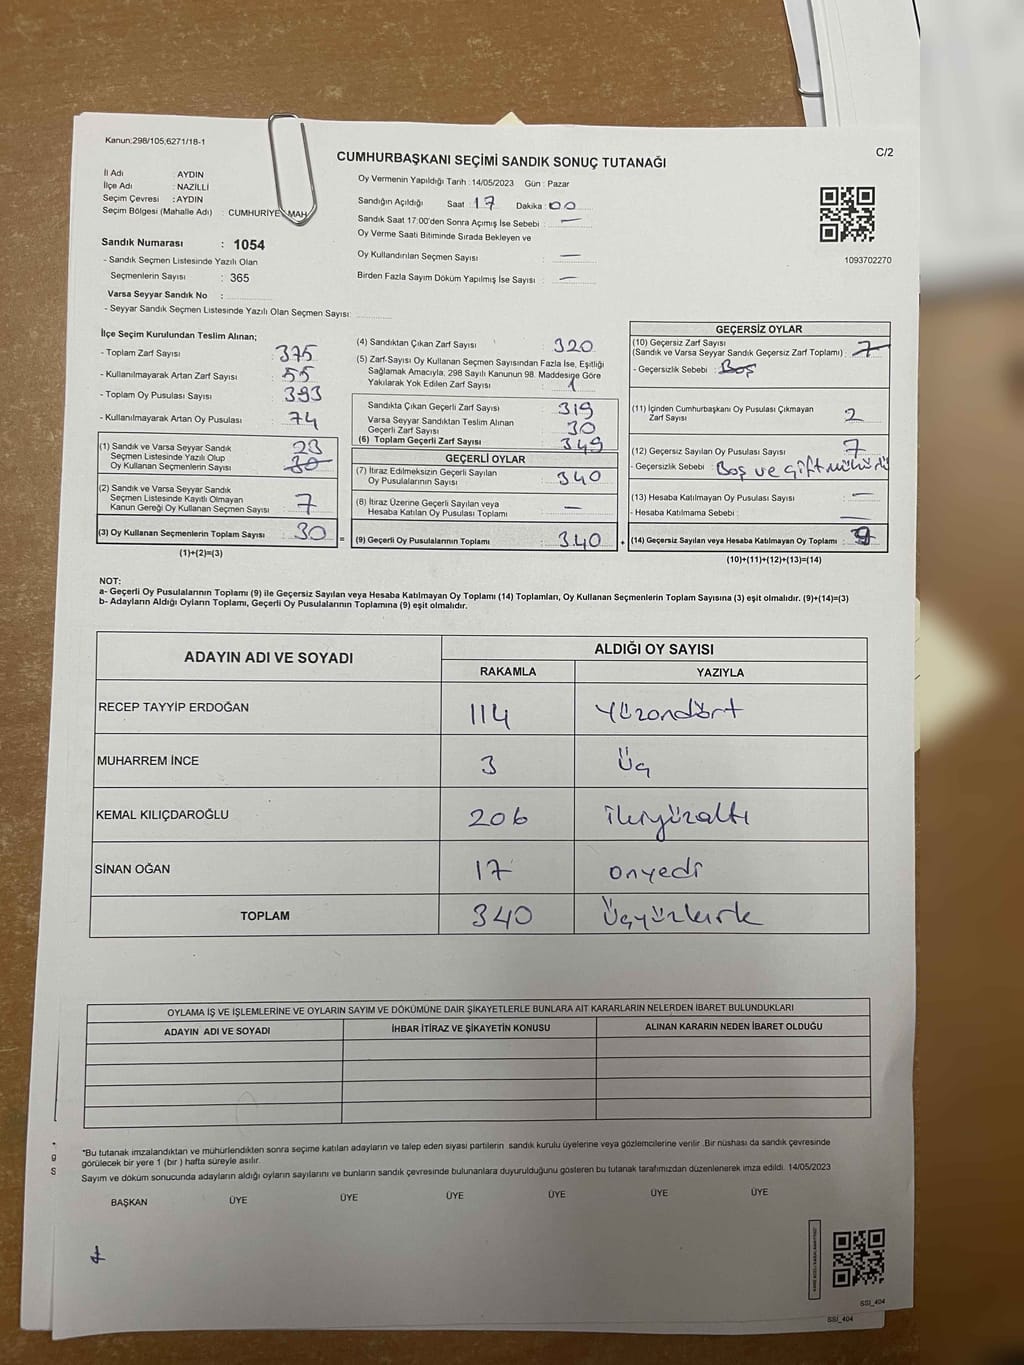 Kanun:298/105;6271/18-1
C/2
CUMHURBAŞKANI SEÇİMİ SANDIK SONUÇ TUTANAĞI
İl Adı : AYDIN
İlçe Adı : NAZİLLİ
Seçim Çevresi : AYDIN
Seçim Bölgesi (Mahalle Adı) : CUMHURİYE MAH
Sandık Numarası : 1054
- Sandık Seçmen Listesinde Yazılı Olan
Seçmenlerin Sayısı : 365
Varsa Seyyar Sandık No :
- Seyyar Sandık Seçmen Listesinde Yazılı Olan Seçmen Sayısı:
Oy Vermenin Yapıldığı Tarih : 14/05/2023 Gün : Pazar
Sandığın Açıldığı Saat : 17 Dakika : 00
Sandık Saat 17:00'den Sonra Açımış İse Sebebi : —
Oy Verme Saati Bitiminde Sırada Bekleyen ve
Oy Kullandırılan Seçmen Sayısı : —
Birden Fazla Sayım Döküm Yapılmış İse Sayısı : —
1093702270
İlçe Seçim Kurulundan Teslim Alınan;
- Toplam Zarf Sayısı : 375
- Kullanılmayarak Artan Zarf Sayısı : 55
- Toplam Oy Pusulası Sayısı : 393
- Kullanılmayarak Artan Oy Pusulası : 74
(1) Sandık ve Varsa Seyyar Sandık
Seçmen Listesinde Yazılı Olup
Oy Kullanan Seçmenlerin Sayısı : 23 30
(2) Sandık ve Varsa Seyyar Sandık
Seçmen Listesinde Kayıtlı Olmayan
Kanun Gereği Oy Kullanan Seçmen Sayısı : 7
(3) Oy Kullanan Seçmenlerin Toplam Sayısı : 30
(1)+(2)=(3)
=
(4) Sandıktan Çıkan Zarf Sayısı : 320
(5) Zarf-Sayısı Oy Kullanan Seçmen Sayısından Fazla İse, Eşitliği
Sağlamak Amacıyla, 298 Sayılı Kanunun 98. Maddesine Göre
Yakılarak Yok Edilen Zarf Sayısı : 1
Sandıkta Çıkan Geçerli Zarf Sayısı : 319
Varsa Seyyar Sandıktan Teslim Alınan
Geçerli Zarf Sayısı : 30
(6) Toplam Geçerli Zarf Sayısı : 349
GEÇERLİ OYLAR
(7) İtiraz Edilmeksizin Geçerli Sayılan
Oy Pusulalarının Sayısı : 340
(8) İtiraz Üzerine Geçerli Sayılan veya
Hesaba Katılan Oy Pusulası Toplamı : —
(9) Geçerli Oy Pusulalarının Toplamı : 340
+
GEÇERSİZ OYLAR
(10) Geçersiz Zarf Sayısı
(Sandık ve Varsa Seyyar Sandık Geçersiz Zarf Toplamı) : 7
- Geçersizlik Sebebi : Boş
(11) İçinden Cumhurbaşkanı Oy Pusulası Çıkmayan
Zarf Sayısı : 2
(12) Geçersiz Sayılan Oy Pusulası Sayısı : 7
- Geçersizlik Sebebi : Boş ve çift mühürlü
(13) Hesaba Katılmayan Oy Pusulası Sayısı : —
- Hesaba Katılmama Sebebi : —
(14) Geçersiz Sayılan veya Hesaba Katılmayan Oy Toplamı : 9
(10)+(11)+(12)+(13)=(14)
NOT:
a- Geçerli Oy Pusulalarının Toplamı (9) ile Geçersiz Sayılan veya Hesaba Katılmayan Oy Toplamı (14) Toplamları, Oy Kullanan Seçmenlerin Toplam Sayısına (3) eşit olmalıdır. (9)+(14)=(3)
b- Adayların Aldığı Oyların Toplamı, Geçerli Oy Pusulalarının Toplamına (9) eşit olmalıdır.
ADAYIN ADI VE SOYADI
ALDIĞI OY SAYISI
RAKAMLA YAZIYLA
RECEP TAYYİP ERDOĞAN 114 Yüzondört
MUHARREM İNCE 3 Üç
KEMAL KILIÇDAROĞLU 206 ikiyüzaltı
SİNAN OĞAN 17 onyedi
TOPLAM 340 Üçyüzkırk
OYLAMA İŞ VE İŞLEMLERİNE VE OYLARIN SAYIM VE DÖKÜMÜNE DAİR ŞİKAYETLERLE BUNLARA AİT KARARLARIN NELERDEN İBARET BULUNDUKLARI
ADAYIN ADI VE SOYADI İHBAR İTİRAZ VE ŞİKAYETİN KONUSU ALINAN KARARIN NEDEN İBARET OLDUĞU
*Bu tutanak imzalandıktan ve mühürlendikten sonra seçime katılan adayların ve talep eden siyasi partilerin sandık kurulu üyelerine veya gözlemcilerine verilir .Bir nüshası da sandık çevresinde
görülecek bir yere 1 (bir ) hafta süreyle asılır.
Sayım ve döküm sonucunda adayların aldığı oyların sayılarını ve bunların sandık çevresinde bulunanlara duyurulduğunu gösteren bu tutanak tarafımızdan düzenlenerek imza edildi. 14/05/2023
BAŞKAN ÜYE ÜYE ÜYE ÜYE ÜYE ÜYE
SSI_404
SSI_404